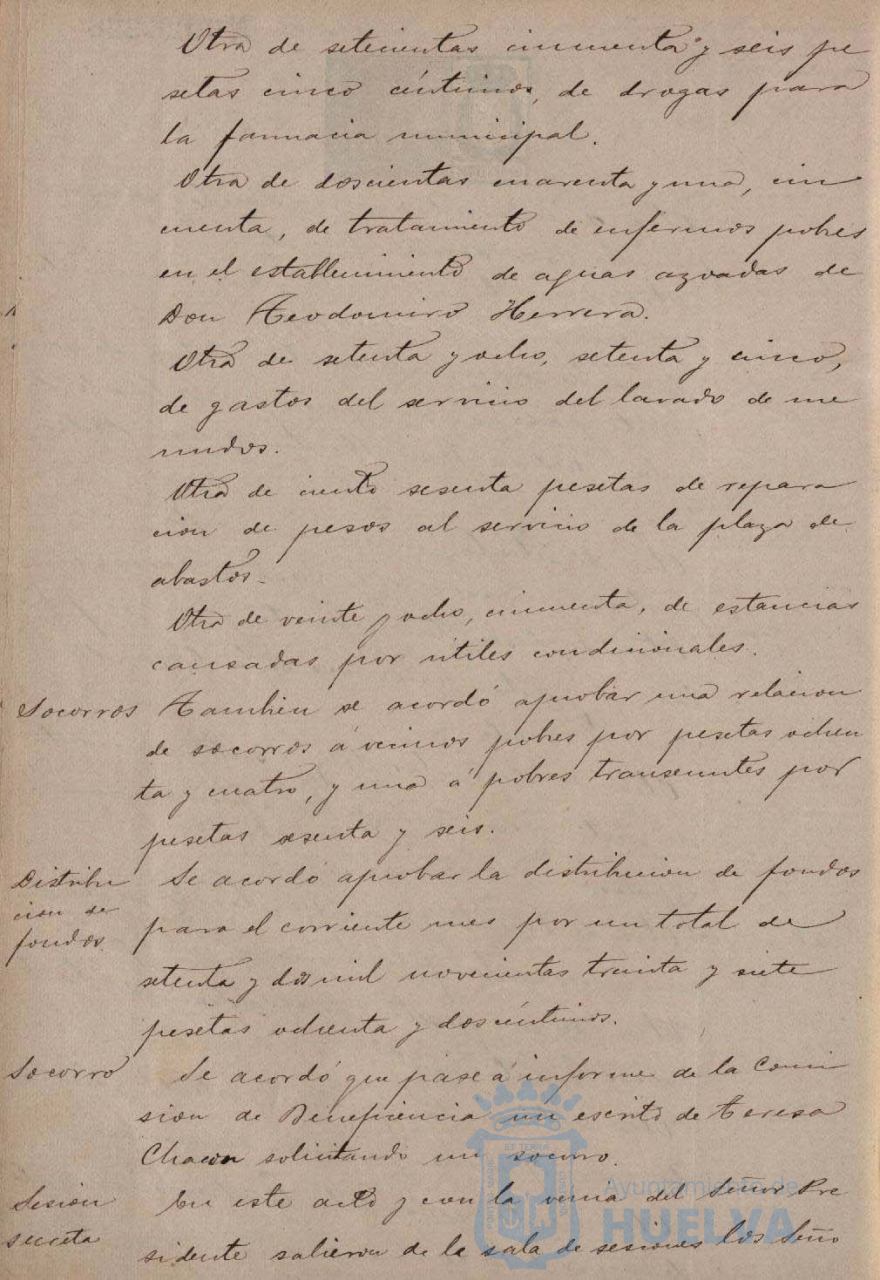 Otra de setecientas cincuenta y seis pe
setas cinco céntimos, de drogas para
la farmacia municipal.
Otra de doscientas cuarenta y una, cin
cuenta, de tratamiento de enfermos pobres
en el establecimiento de aguas azoadas de
Don Teodomiro Herrera.
Otra de setenta y ocho, setenta y cinco,
de gastos del servicio del lavado de me
nudos.
Otra de ciento sesenta pesetas de repara
cion de pesos al servicio de la plaza de
abastos.
Otra de veinte y ocho, cincuenta, de estancias
causadas por útiles condicionales.
Socorros
Tambien se acordó aprobar una relacion
de socorros á vecinos pobres por pesetas ochen
ta y cuatro, y una á pobres transeuntes por
pesetas sesenta y seis.
Distribu
cion de
fondos.
Se acordó aprobar la distribucion de fondos
para el corriente mes por un total de
setenta y dos mil novecientas treinta y siete
pesetas ochenta y dos céntimos.
Socorro
Se acordó que pase á informe de la Comi
sion de Beneficencia un escrito de Teresa
Chacon solicitando un socorro.
Sesion
secreta
En este acto y con la venia del Señor Pre
sidente salieron de la sala de sesiones los Seño
Ayuntamiento de
HUELVA